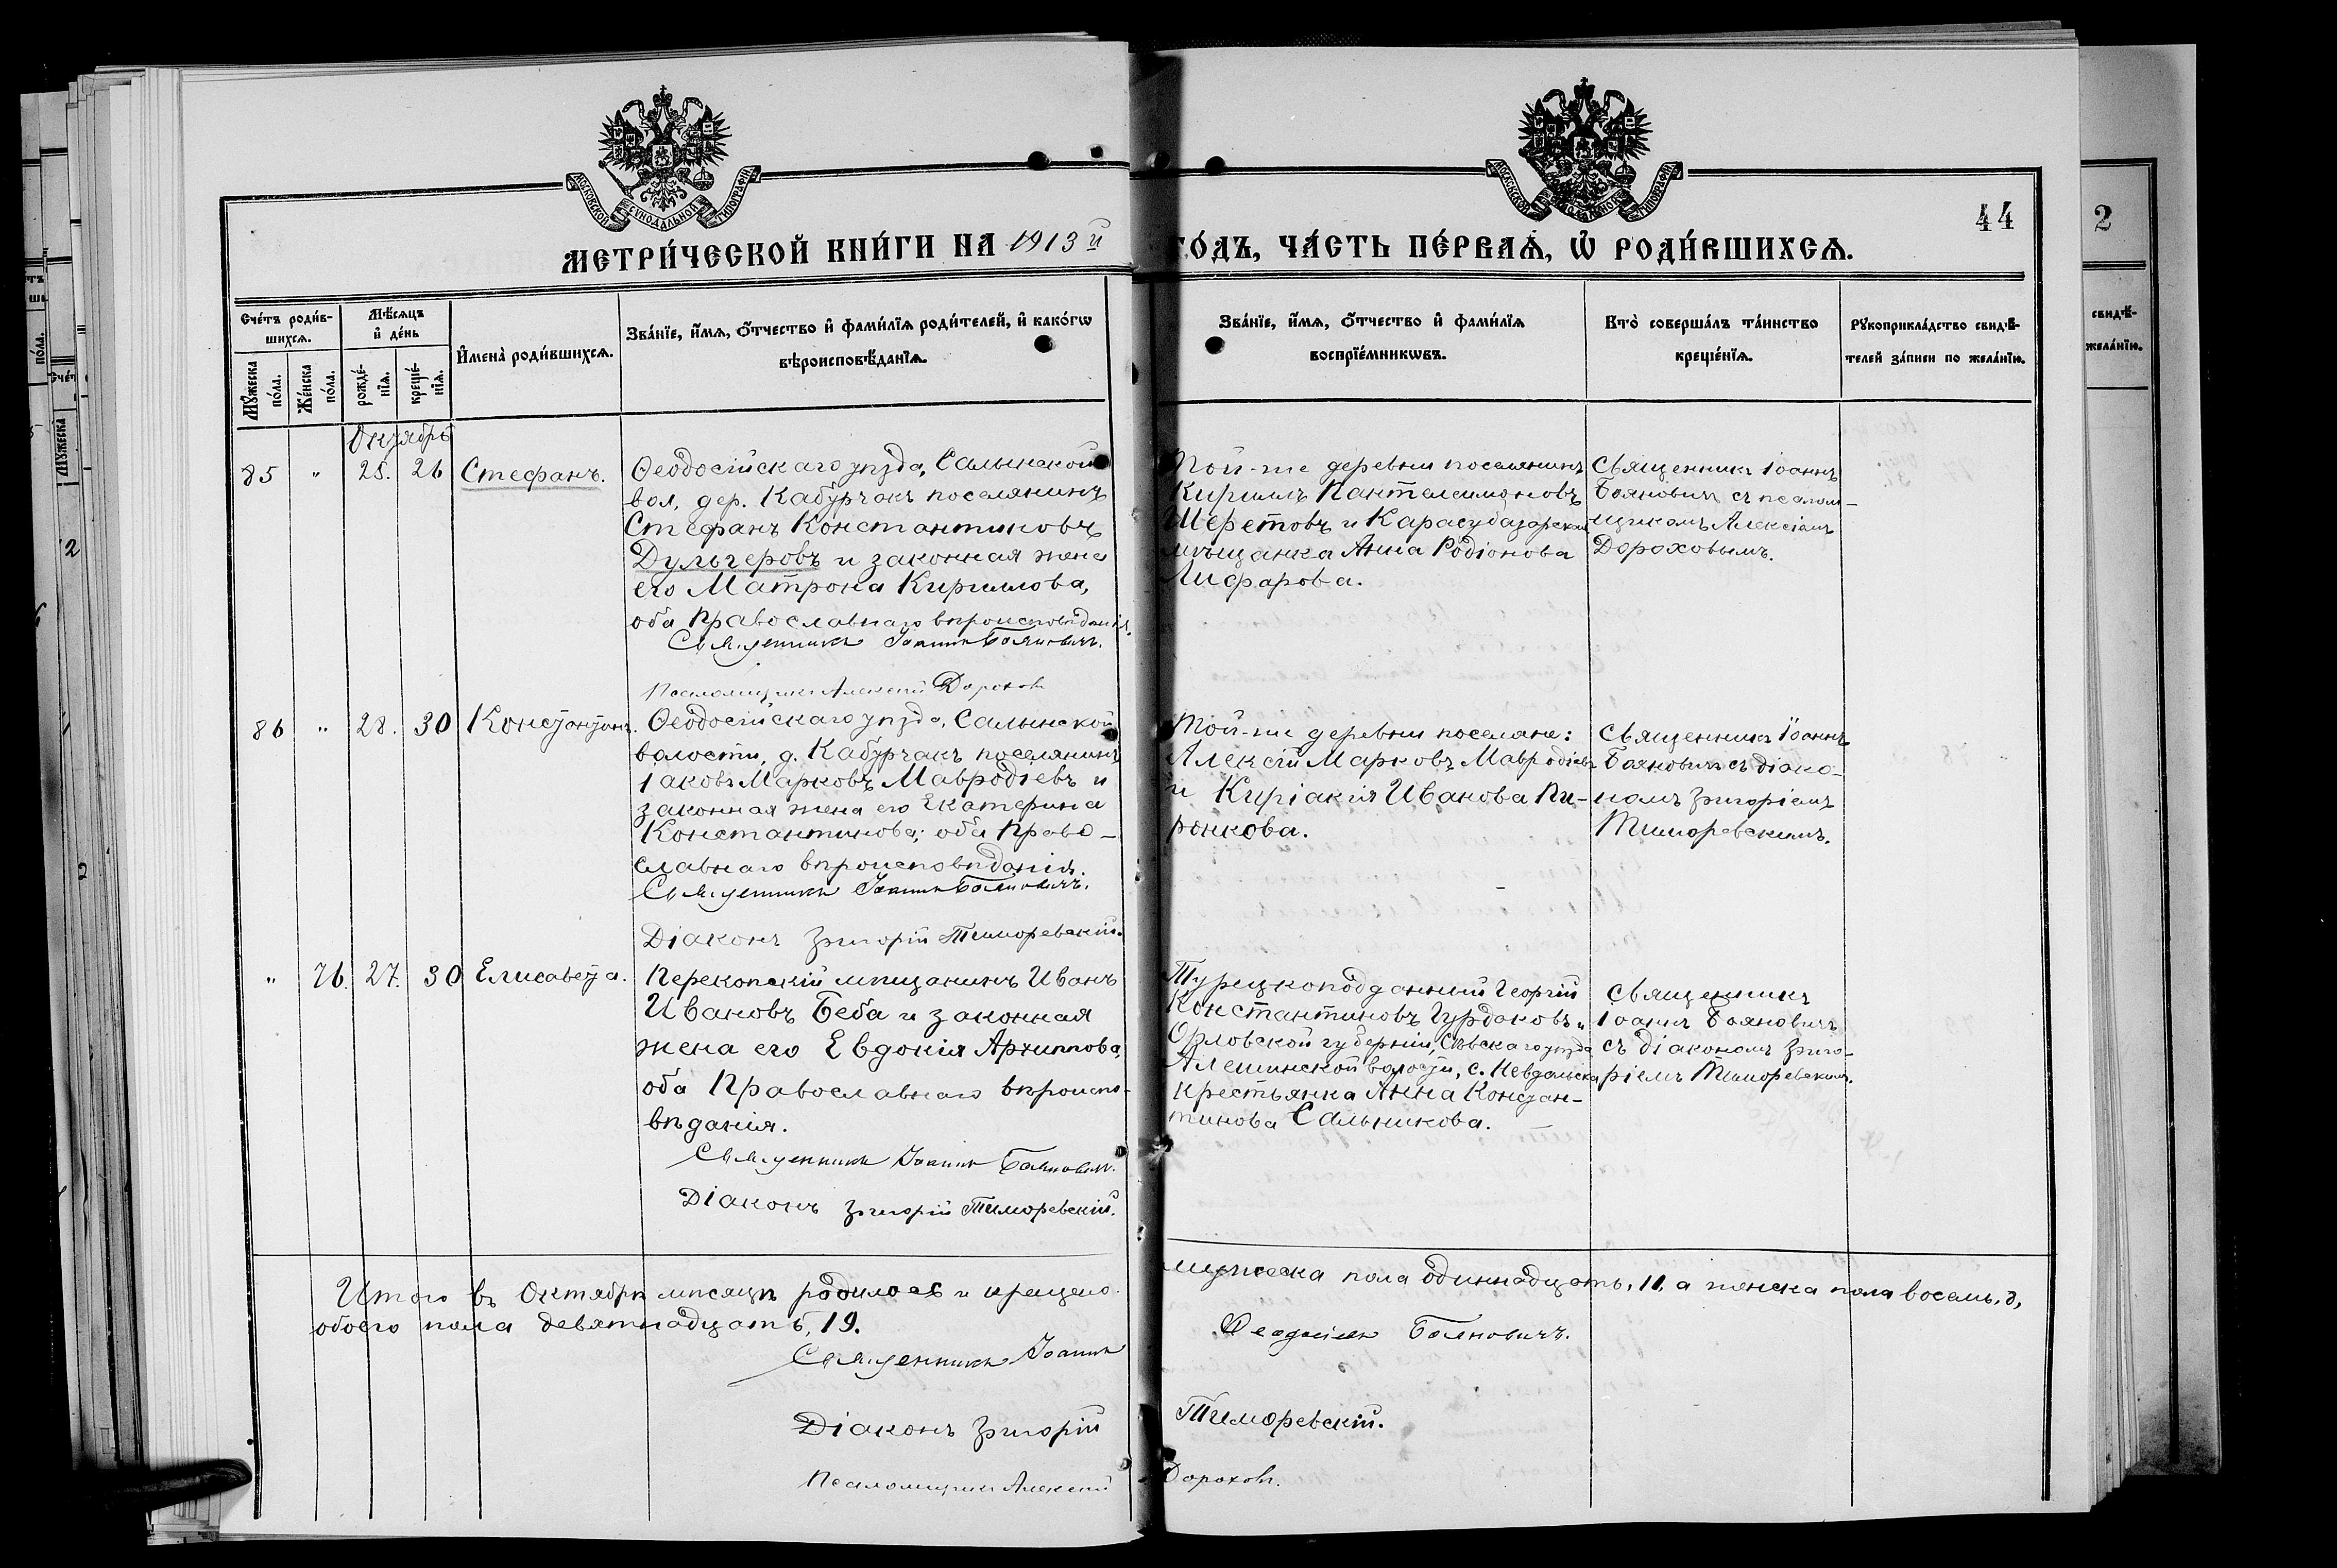 МОСКОВСКОЙ СѴНОДАЛЬНОЙ ТИПОГРАФІИ
МОСКОВСКОЙ СѴНОДАЛЬНОЙ ТИПОГРАФІИ
44
2
МЕТРИ́ЧЕСКОЙ КНИ́ГИ НА 1913й ГО́ДЪ, ЧА́СТЬ ПЕ́РВАѦ, Ѡ РОДИ́ВШИХСѦ.
Сче́тъ роди́в-
шихсѧ.
Мꙋ́жеска по́ла.
Же́нска по́ла.
Мѣ́сѧцъ и҆ де́нь
рожде́-
нїѧ.
креще́-
нїѧ.
И҆мена̀ роди́вшихсѧ.
Зва́нїе, и҆́мѧ, ѻ҆́тчество и҆ фами́лїѧ роди́телей, и҆ како́гѡ
вѣроисповѣ́данїѧ.
Зва́нїе, и҆́мѧ, ѻ҆́тчество и҆ фами́лїѧ
воспрїе́мникѡвъ.
Кто̀ соверша́лъ та́инство
креще́нїѧ.
Рꙋкоприкла́дство свидѣ́-
телей за́писи по жела́нїю.
Октябрь
85 " 25. 26 Стефанъ.
Ѳеодосійскаго уѣзда, Салынской
вол, дер. Кабурчакъ поселянинъ
Стефанъ Константиновъ
Дульгеровъ и законная жена
его Матрона Кириллова,
оба Православнаго вѣроисповѣданія.
Священникъ Іоаннъ Бояновичъ.
Псаломщикъ Алексій Дороховъ
Той-же деревни поселянинъ
Кириллъ Пантелеимоновъ
Шеретовъ и Карасубазарская
мѣщанка Анна Родіонова
Лифарова.
Священникъ Іоаннъ
Бояновичъ съ псалом-
щикомъ Алексіемъ
Дороховымъ.
86 " 28. 30 Константинъ.
Ѳеодосійскаго уѣзда, Салынской
волости, д. Кабурчакъ поселянинъ
Іаковъ Марковъ Мавродіевъ и
законная жена его Екатерина
Константинова; оба Право-
славнаго вѣроисповѣданія.
Священникъ Іоаннъ Бояновичъ.
Діаконъ Григорій Тиморевскій.
Той-же деревни поселяне:
Алексій Марковъ Мавродіевъ
и Киріакія Иванова Пи-
ронкова.
Священникъ Іоаннъ
Бояновичъ съ діако-
номъ Григоріемъ
Тиморевскимъ.
" 76. 27. 30 Елисавета.
Перекопскій мѣщанинъ Иванъ
Ивановъ Беба и законная
жена его Евдокія Архиппова,
оба Православнаго вѣроиспо-
вѣданія.
Священникъ Іоаннъ Бояновичъ.
Діаконъ Григорій Тиморевскій.
Турецкоподданный Георгій
Константиновъ Гурдаковъ и
Орловской губерніи, Сѣвскаго уѣзда
Алешинской волости, с. Невдольска
крестьянка Анна Констан-
тинова Сальникова.
Священникъ
Іоаннъ Бояновичъ
съ діакономъ Григо-
ріемъ Тиморевскимъ.
Итого въ Октябрѣ мѣсяцѣ родилось и крещено мужеска пола одиннадцать, 11, а женска пола восемь, 8,
обоего пола девятнадцать, 19.
Священникъ Іоаннъ Бояновичъ.
Діаконъ Григорій Тиморевскій.
Псаломщикъ Алексій Дороховъ.